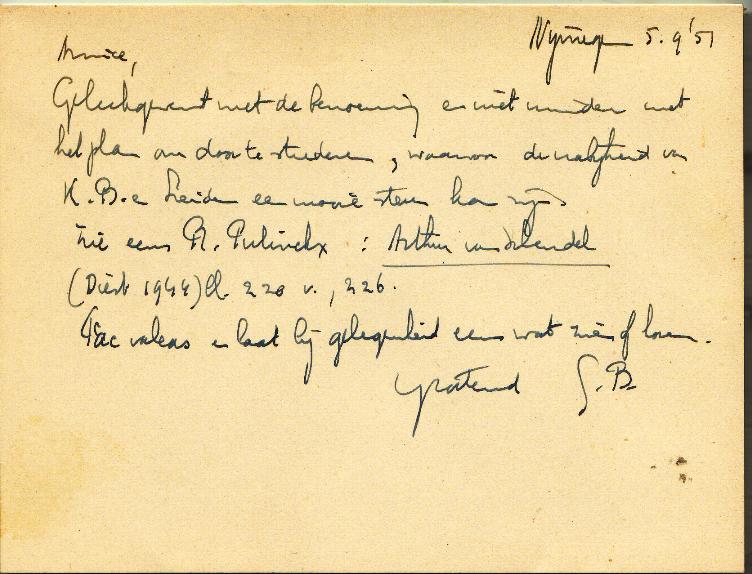 Nijmegen 5.9'51
Amice,
Gelukgewenst met de benoeming en niet minder met
het plan om door te studeren, waarvoor de nabijheid van
K.B. en Leiden een mooie steun kan zijn.
Zie eens R. Pulinckx : Arthur van Schendel
(Diest 1944) bl. 220 v., 226.
Fac valeas en laat bij gelegenheid eens wat zien of horen.
Groetend G.B.